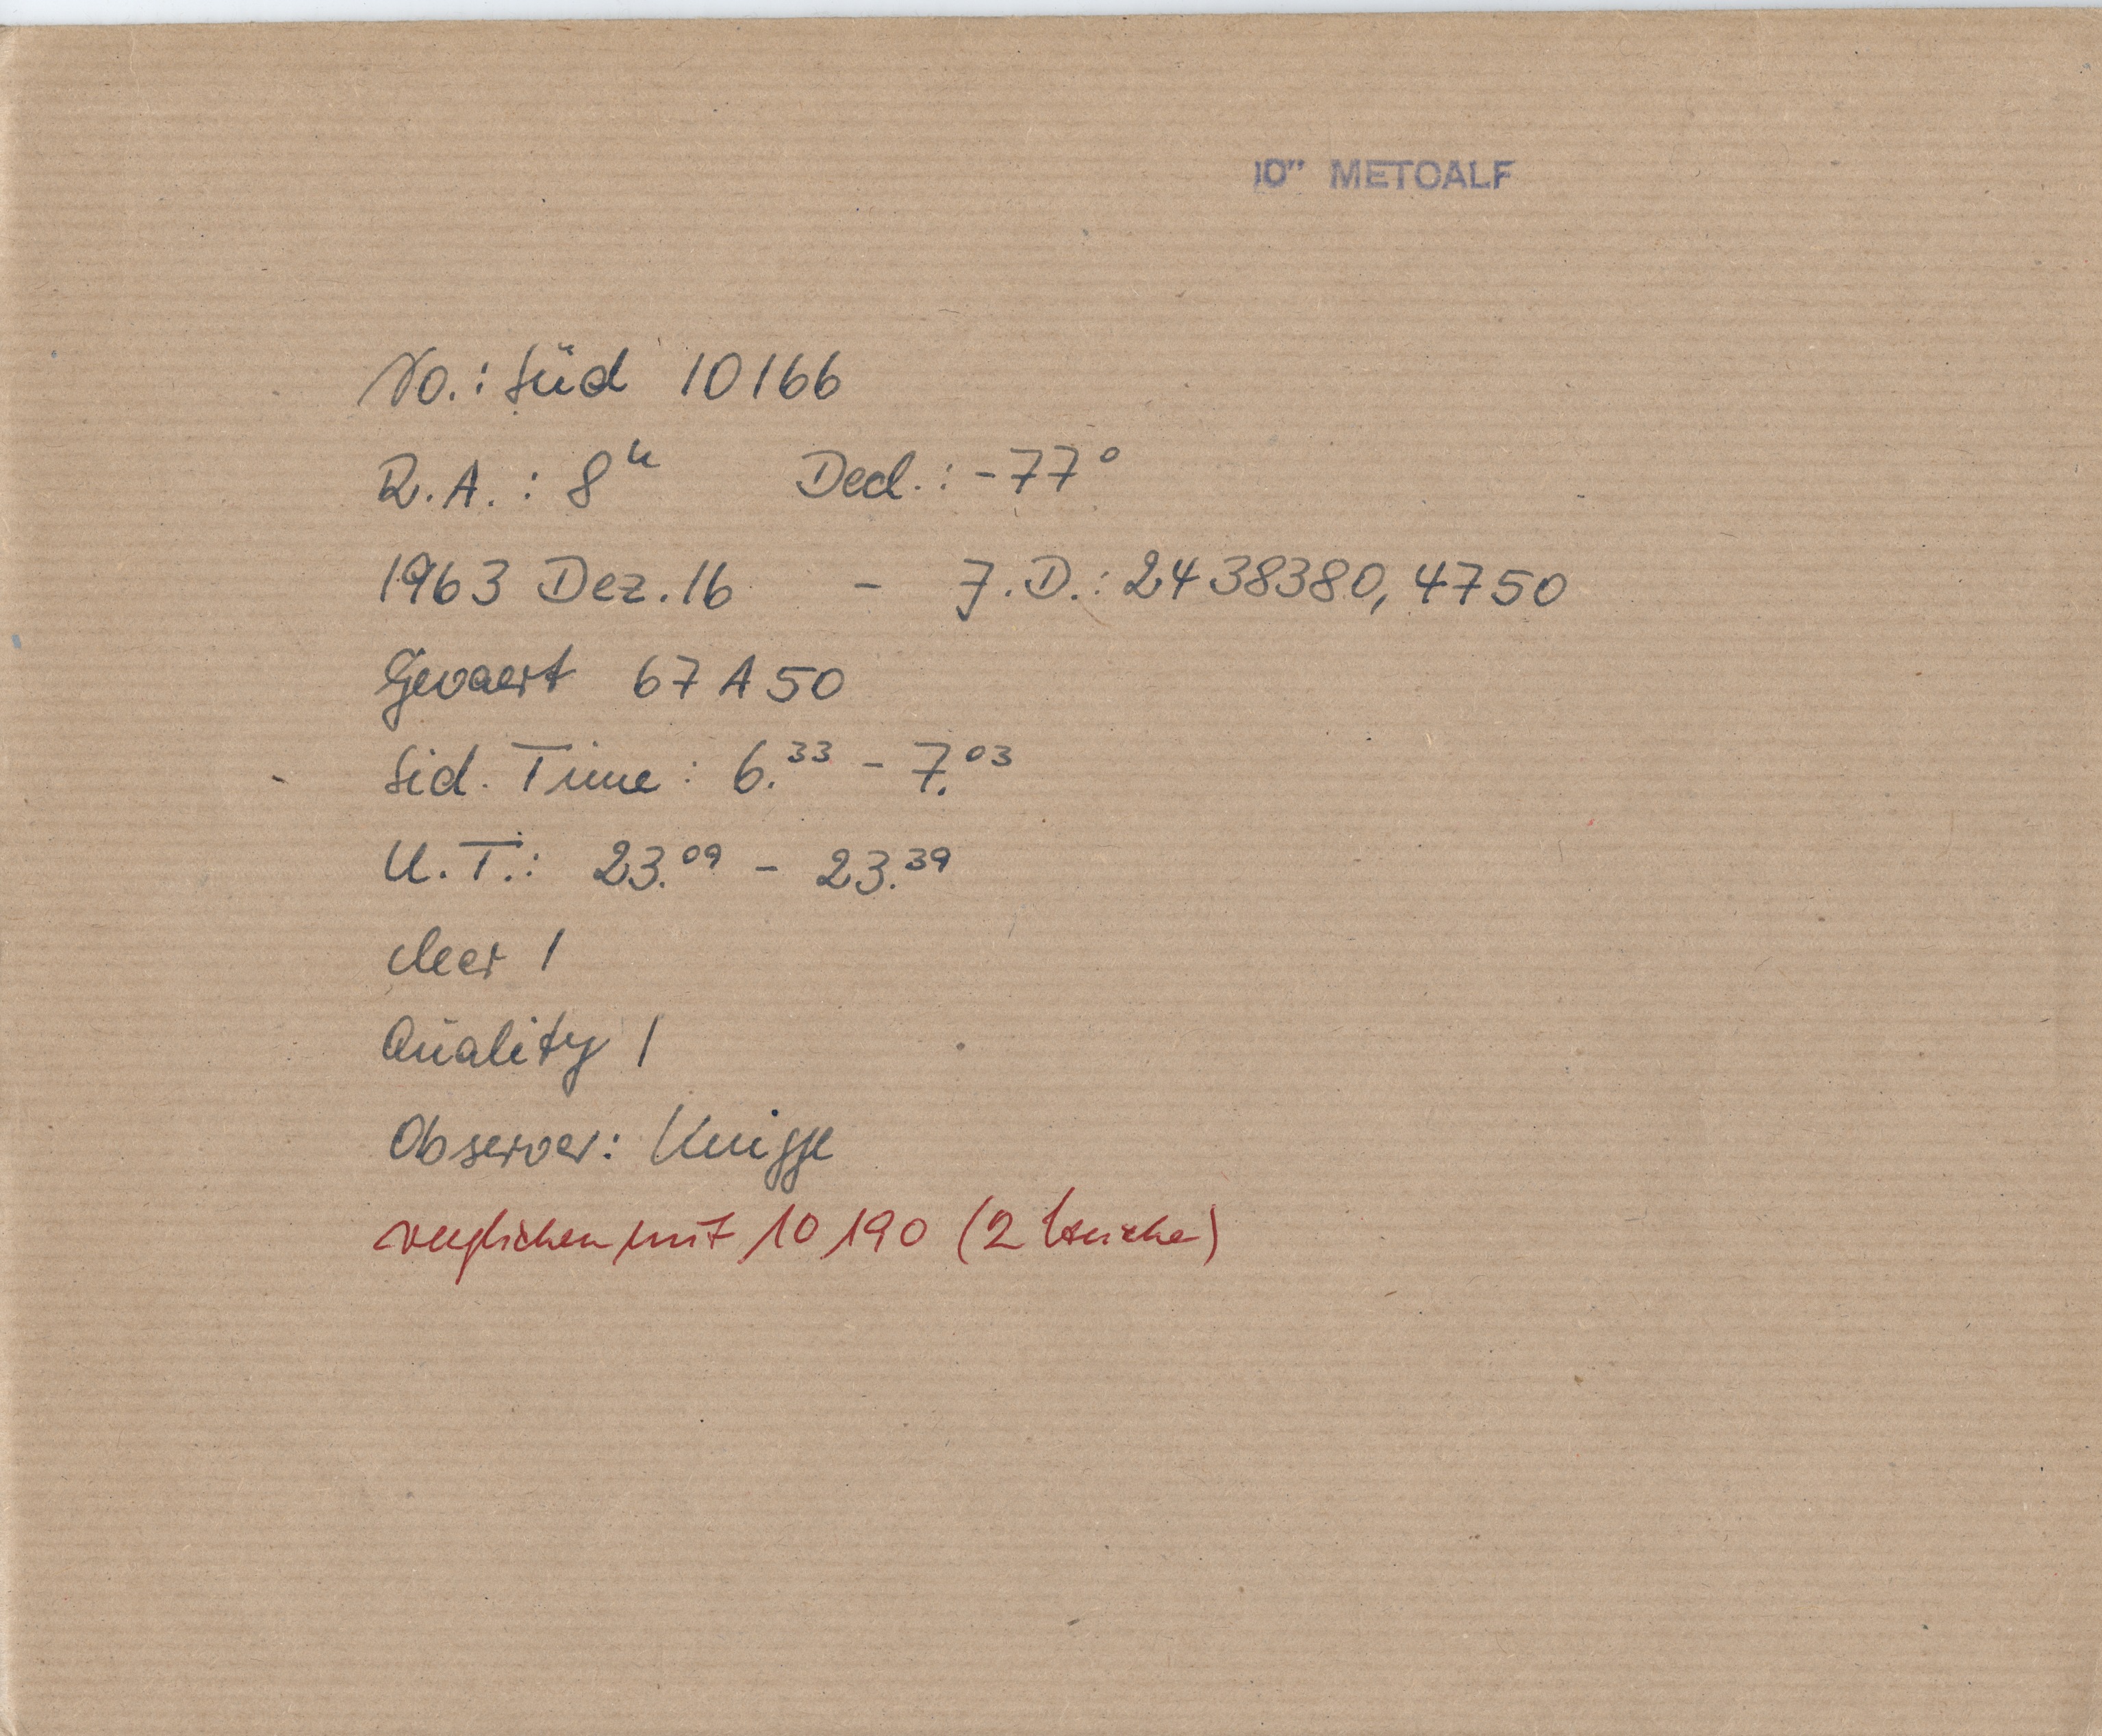 10" METCALF
No.: Süd 10166
R.A.: 8ʰ Decl.: -77°
1963 Dez. 16 - J.D.: 2438380,4750
Gevaert 67 A 50
Sid. Time: 6.³³ - 7.⁰³
U.T.: 23.⁰⁹ - 23.³⁹
clear 1
Quality 1
Observer: Knigge
verglichen mit 10190 (2 Striche)